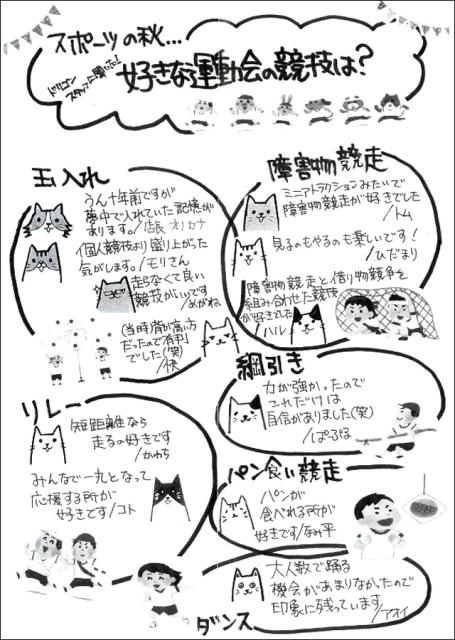 スポーツの秋…
ドリコン
スタッフに聞いた!
好きな運動会の競技は?
玉入れ
うん十年前ですが
夢中で入れていた記憶が
あります。/店長オリカナ
個人競技より盛り上がった
気がします。/モリさん
走らなくて良い
競技がいいです
/めがね
(当時)背が高い方
だったので有利
でした(笑)
/快
障害物競走
ミニアトラクションみたいで
障害物競走が好きでした
/トム
見るのもやるのも楽しいです!
/ひだまり
障害物競走と借り物競争を
組み合わせた競技
が好きでした
/ハル
綱引き
力が強かったので
これだけは
自信がありました(笑)
/ぱぷる
リレー
短距離なら
走るの好きです
/かわち
みんなで一丸となって
応援する所が
好きです/コト
パン食い競走
パンが
食べれる所が
好きです/なみ平
大人数で踊る
機会があまりなかったので
印象に残っています
/アオイ
ダンス